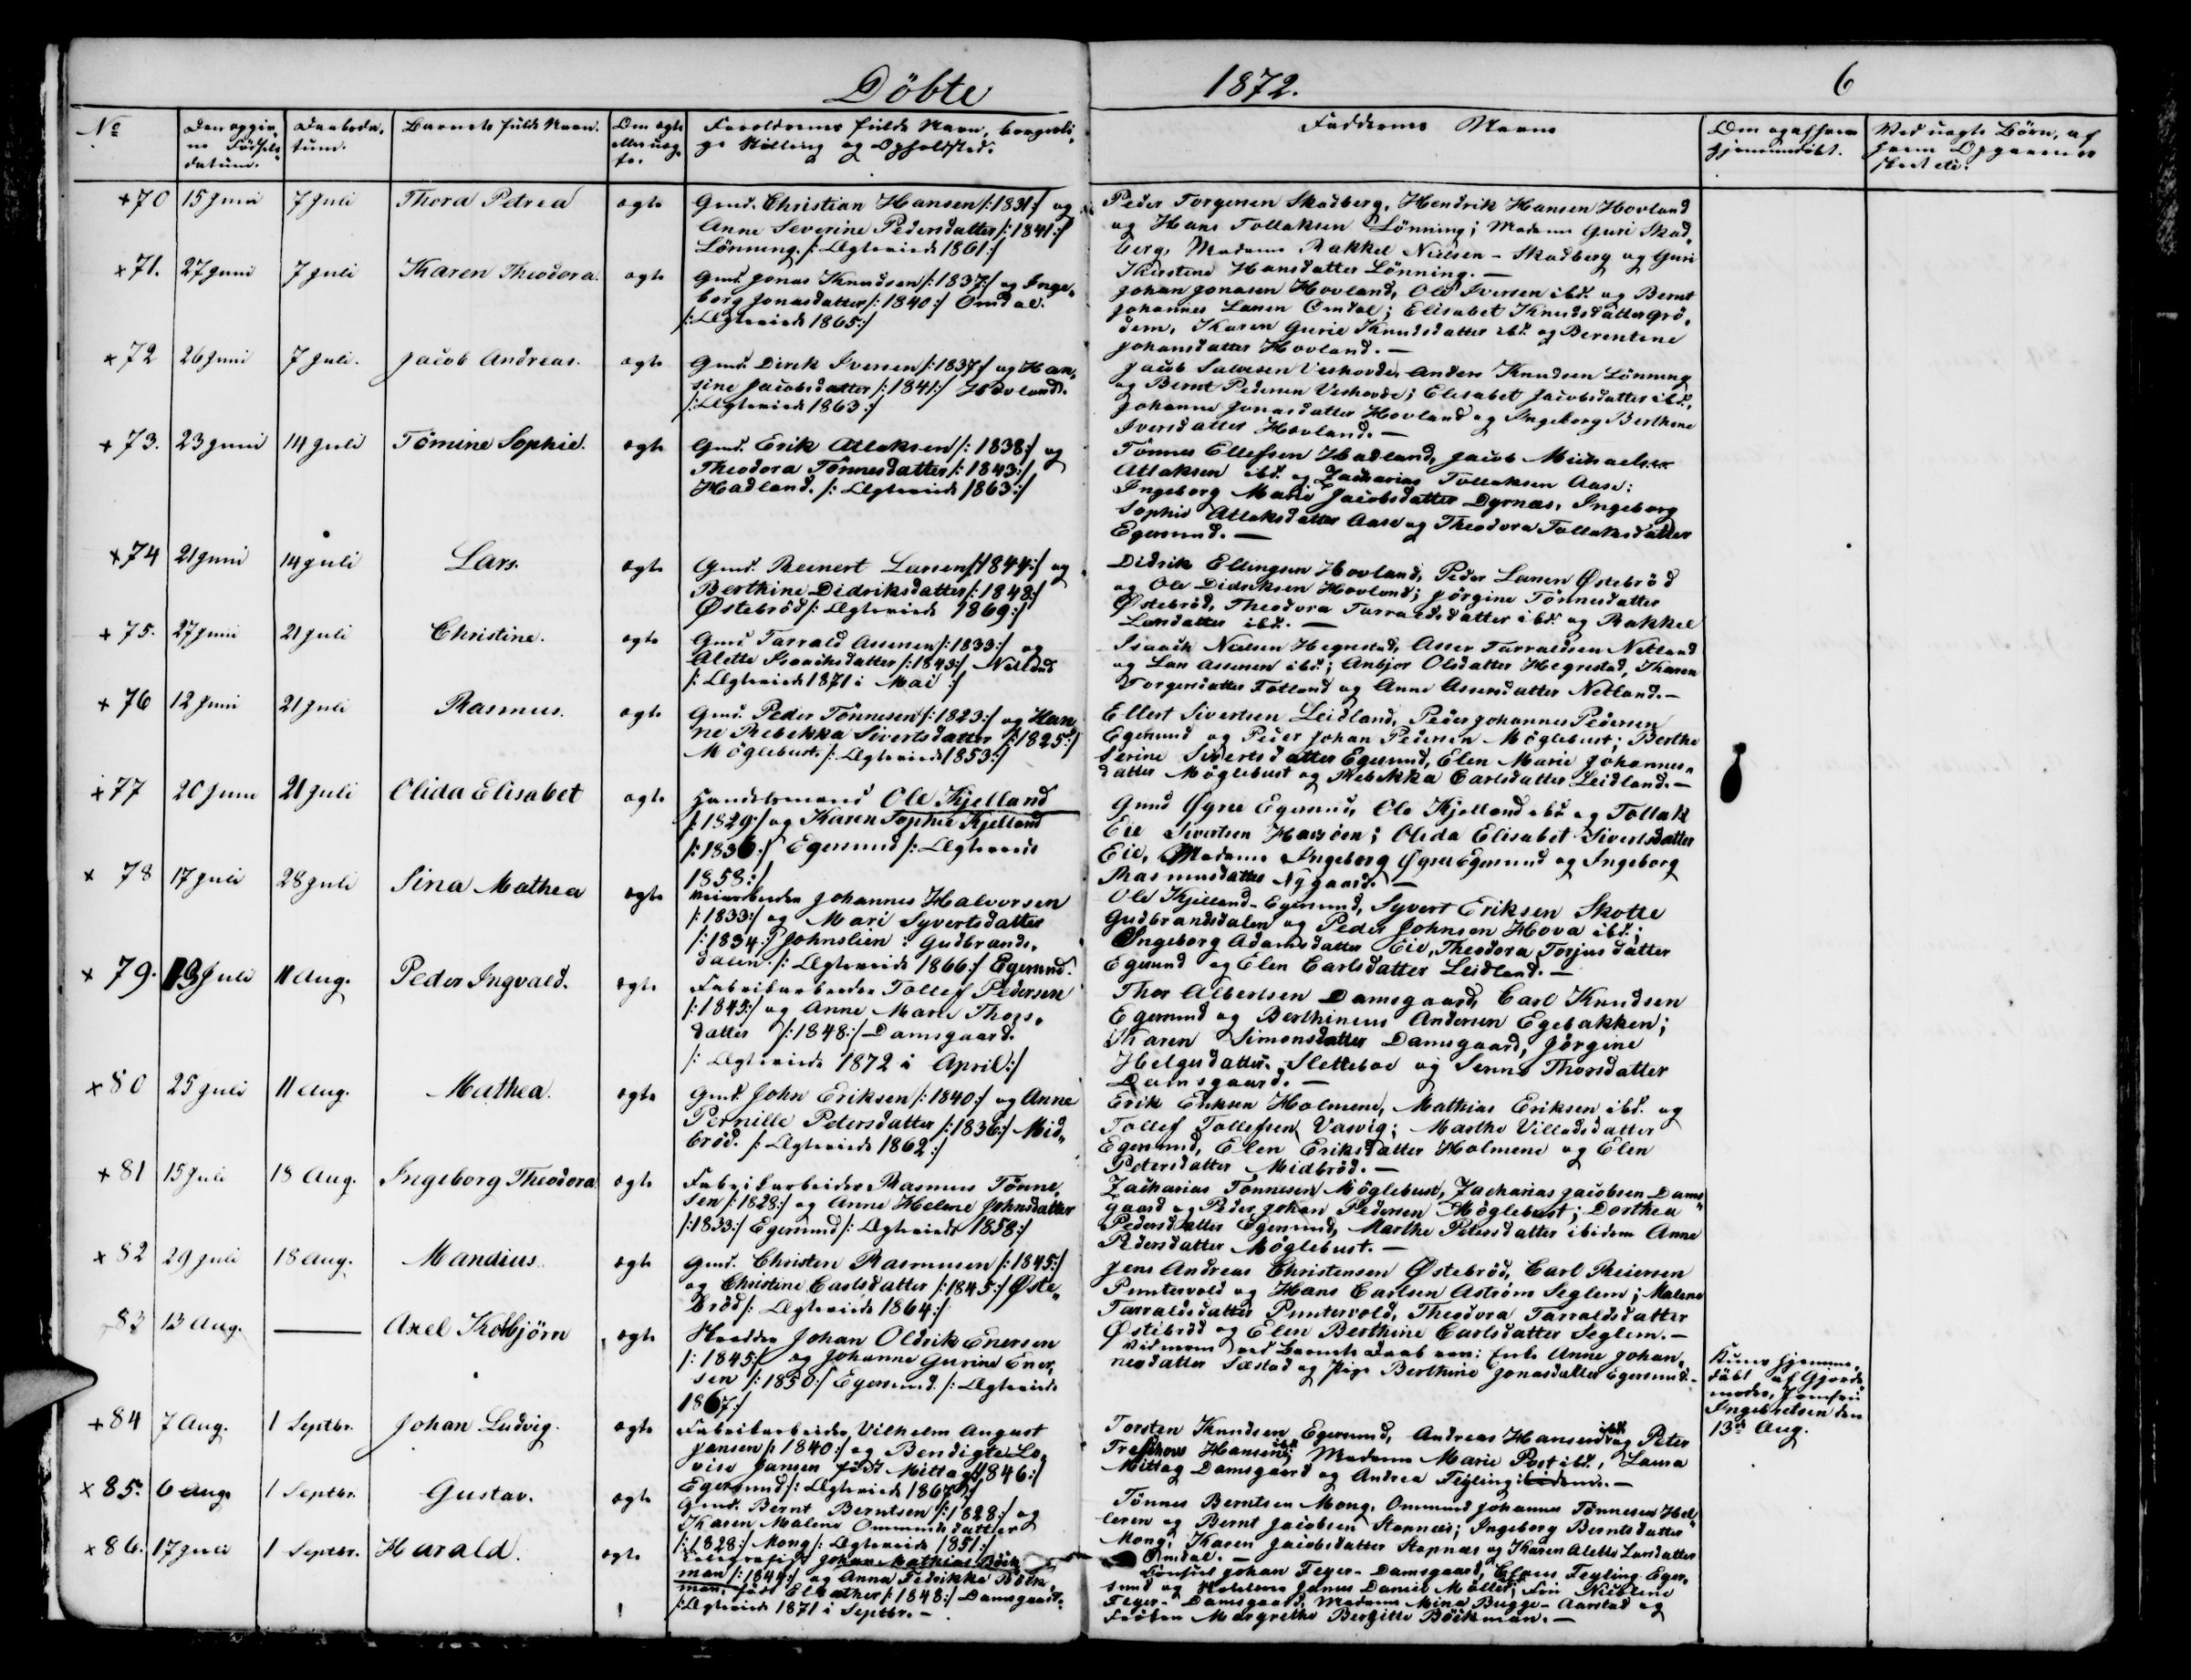 Döbte 1872. 6
No
Den opgiv-
ne Fødsels-
datum.
Daabsda-
tum.
Barnets fulde Navn.
Om ægte
eller uæg-
te.
Forældrenes fulde Navn, borgerli-
ge Stilling og Opholdssted.
Faddernes Navne
Om og af hvem
hjemmedøbt.
Ved uægte Börn, af
hvem Opgaven er
skeet etc.
+70 15 Juni 7 Juli Thora Petrea ægte
Gmd. Christian Hansen /:1831:/ og
Anne Severine Pedersdatter /:1841:/
Lönning. /: Ægteviede 1861:/
Peder Torgersen Skadberg, Hendrik Hansen Hovland
og Hans Tollaksen Lönning; Madame Guri Skad-
berg, Madame Rakkel Nielsen-Skadberg og Guri
Kirstine Hansdatter Lönning. —
+71. 27 Juni 7 Juli Karen Theodora. ægte
Gmd. Jonas Knudsen /:1837:/ og Inge-
borg Jonasdatter /:1840:/ Omdal.
/: Ægteviede 1865:/
Johan Jonasen Hovland, Ole Iversen ibd. og Bernt
Johannes Larsen Omdal; Elisabet Knudsdatter Grö-
dem, Karen Gurie Knudsdatter ibd. og Berentine
Johansdatter Hovland. —
+72 26 Juni 7 Juli. Jacob Andreas. ægte
Gmd. Dirik Iversen /:1837:/ og Han-
sine Jacobsdatter /:1841:/ Hovland.
/: Ægteviede 1863:/
Jacob Salvesen Veshovde, Anders Knudsen Lönning
og Bernt Pedersen Veshovde; Elisabet Jacobsdatter ibd.,
Johanne Jonasdatter Hovland og Ingeborg Berthine
Iversdatter Hovland. —
+73. 23 Juni 14 Juli Tömine Sophie. ægte
Gmd. Erik Atlaksen /:1838:/ og
Theodora Tönnesdatter /:1843:/
Hadland. /: Ægteviede 1863:/
Tönnes Ellefsen Hadland, Jacob Michaelsen
Atlaksen ibd. og Zacharias Tollaksen Aase;
Ingeborg Marie Jacobsdatter Dyrnæs, Ingeborg
Sophie Atlaksdatter Aase og Theodora Tollaksdatter
Egersund. —
+74 21 Juni 14 Juli Lars. ægte
Gmd. Reinert Larsen /:1844:/ og
Berthine Didriksdatter /:1848:/
Østebröd /: Ægteviede 1869:/
Didrik Ellingsen Hovland, Peder Larsen Østebröd
og Ole Didriksen Hovland; Jörgine Tönnesdatter
Østebröd, Theodora Tarraldsdatter ibd. og Rakkel
Larsdatter ibd. —
+75. 27 Juni 21 Juli Christine. ægte
Gmd Tarrald Assersen /:1833:/ og
Alette Isaachsdatter /:1843:/ Netland
/: Ægteviede 1871 i Mai :/
Isaach Nielsen Hegrestad, Asser Tarraldsen Netland
og Lars Assersen ibd.; Anbjør Olsdatter Hegrestad, Karen
Torgersdatter Fotland og Anne Assersdatter Netland. —
+76 12 Juni 21 Juli Rasmus. ægte
Gmd. Peder Tönnesen /:1823:/ og Han-
ne Rebekka Sivertsdatter /:1825:/
Möglebust. /: Ægteviede 1853:/
Ellert Sivertsen Leidland, Peder Johannes Pedersen
Egersund og Peder Johan Pedersen Möglebust; Berthe
Serine Sivertsdatter Egersund, Elen Marie Johannes-
datter Möglebust og Rebekka Carlsdatter Leidland. —
+77 20 Juni 21 Juli Olida Elisabet ægte
Handelsmand Ole Kjelland
/:1829:/ og Karen Sophie Kjelland
/:1836:/ Egersund /: Ægteviede
1858:/
Gmd Øgree Egersund, Ole Kjelland ibd. og Tollak
Eie Sivertsen Havsöen; Olida Elisabet Sivertsdatter
Eie, Madame Ingeborg Øgree Egersund og Ingeborg
Rasmusdatter Nygaard. —
× 78 17 Juli 28 Juli Sina Mathea ægte
Veiarbeider Johannes Halvorsen
/:1833:/ og Mari Syvertsdatter
/:1834:/ Johnslien i Gudbrands-
dalen. /: Ægteviede 1866:/ Egersund.
Ole Kjelland-Egersund, Syvert Eriksen Skotte
Gudbrandsdalen og Peder Johnsen Hova ibd.;
Ingeborg Adamsdatter Eie, Theodora Torjusdatter
Egersund og Elen Carlsdatter Leidland. —
× 79. 13 Juli 11 Aug. Peder Ingvald. ægte
Fabrikarbeider Tollef Pedersen
/:1845:/ og Anne Marie Thors-
datter /:1848:/ Damsgaard.
/: Ægteviede 1872 i April:/
Thor Albertsen Damsgaard, Carl Knudsen
Egersund og Berthineus Andersen Egebakken;
Karen Simonsdatter Damsgaard, Jörgine
Helgesdatter Sletteboe og Senne Thorsdatter
Damsgaard. —
×80 25 Juli 11 Aug. Mathea. ægte
Gmd. John Eriksen /:1840:/ og Anne
Pernille Petersdatter /:1836:/ Mid-
bröd. /: Ægteviede 1862:/
Erik Eriksen Holmene, Mathias Eriksen ibd. og
Tollef Tollefsen Vasvig; Marthe Villadsdatter
Egersund, Elen Eriksdatter Holmene og Elen
Petersdatter Midbröd. —
+81 15 Juli 18 Aug. Ingeborg Theodora ægte
Fabrikarbeider Rasmus Tönne-
sen /:1828:/ og Anne Helene Johnsdatter
/:1833:/ Egersund /: Ægteviede 1858:/
Zacharias Tönnesen Möglebust, Zacharias Jacobsen Dams-
gaard og Peder Johan Pedersen Möglebust; Dorthea
Pedersdatter Egersund, Marthe Petersdatter ibidem Anne
Pedersdatter Möglebust. —
× 82 29 Juli 18 Aug. Mandius. ægte
Gmd. Christen Rasmussen /:1845:/
og Christine Carlsdatter /:1845:/ Øste-
bröd /: Ægteviede 1864:/
Jens Andreas Christensen Østebröd, Carl Reiersen
Puntervold og Hans Carlsen Aström Seglem; Malene
Tarraldsdatter Puntervold, Theodora Tarraldsdatter
Østebröd og Elen Berthine Carlsdatter Seglem. —
83 13 Aug. — Axel Kolbjörn ægte
Skrædder Johan Oldrik Enersen
/:1845:/ og Johanne Gurine Ener-
sen /:1850:/ Egersund. /: Ægteviede
1867:/
Vidnerne ved Barnets Daab var: Enke Anne Johan-
nesdatter Sæstad og Pige Berthine Jonasdatter Egersund. —
Kuns hjemme-
døbt af Gjorde-
moder, Jomfru
Ingebretsen den
13de Aug.
+84 7 Aug. 1 Septbr. Johan Ludvig. ægte
Fabrikarbeider Vilhelm August
Jansen /:1840:/ og Bendigte Lo-
vise Jansen født Mittag /:1846:/
Egersund /: Ægteviede 1867:/
Torsten Knudsen Egersund, Andreas Hansen ibd. og Peter
Treschow Hansen ibd.; Madame Marie Post ibd., Laura
Mittag Damsgaard og Andrea Feyling ibidem. —
× 85. 6 Aug. 1 Septbr. Gustav. ægte
Gmd. Bernt Berntsen /:1828:/ og
Karen Malene Ommundsdatter
/:1828:/ Mong /: Ægteviede 1851:/
Tönnes Berntsen Mong, Ommund Johannes Tönnesen Hel-
leren og Bernt Jacobsen Stapnæs; Ingeborg Berntsdatter
Mong, Karen Jacobsdatter Stapnæs og Karen Alette Larsdatter
Omdal. —
× 86. 17 Juli 1 Septbr. Harald. ægte
Telegrafist Johan Mathias Böck-
man /:1844:/ og Anna Fredrikke Böck-
man, født Elvather /:1848:/ Damsgaard.
/: Ægteviede 1871 i Septbr. —
Consul Johan Feyer-Damsgaard, Claus Feyling Eger-
sund og James Daniel Möller; Fru
Feyer-Damsgaard, Madame Mina Bugge-Aarstad og
Fröken Margrethe Bergitte Böckman. —